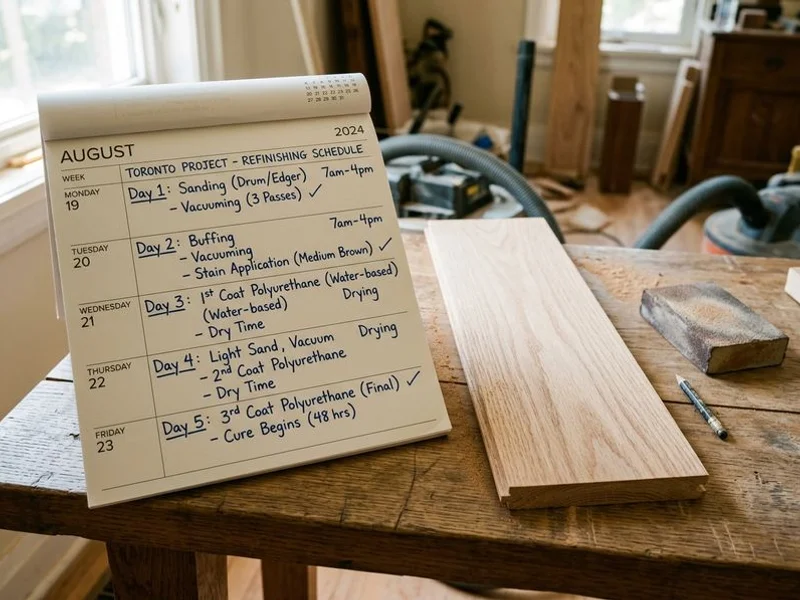 2024
AUGUST
WEEK TORONTO PROJECT - REFINISHING SCHEDULE
MONDAY 19
Day 1: Sanding (Drum/Edger) 7am-4pm
- Vacuuming (3 Passes) ✓
TUESDAY 20
7am-4pm
Day 2: Buffing
- Vacuuming
- Stain Application (Medium Brown) ✓
WEDNESDAY 21
Day 3: 1st Coat Polyurethane (Water-based)
(Water-based) Drying
- Dry Time
THURSDAY 22
Day 4: Light Sand, Vacuum Drying
- 2nd Coat Polyurethane
- Dry Time
FRIDAY 23
Day 5: 3rd Coat Polyurethane (Final) ✓
- Cure Begins (48 hrs)